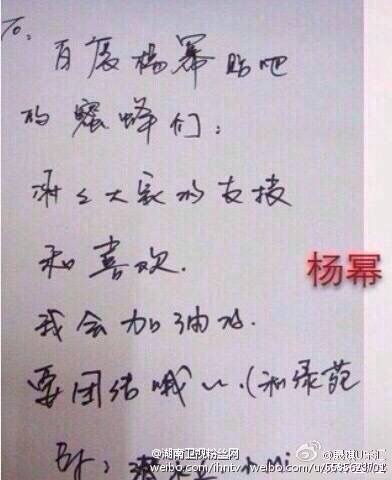 To:
百度杨幂贴吧
的蜜蜂们:
谢谢大家的支持
和喜欢.
杨幂
我会加油的.
要团结哦~.(和绿苑
@湖南卫视粉丝网
weibo.com/ihntv